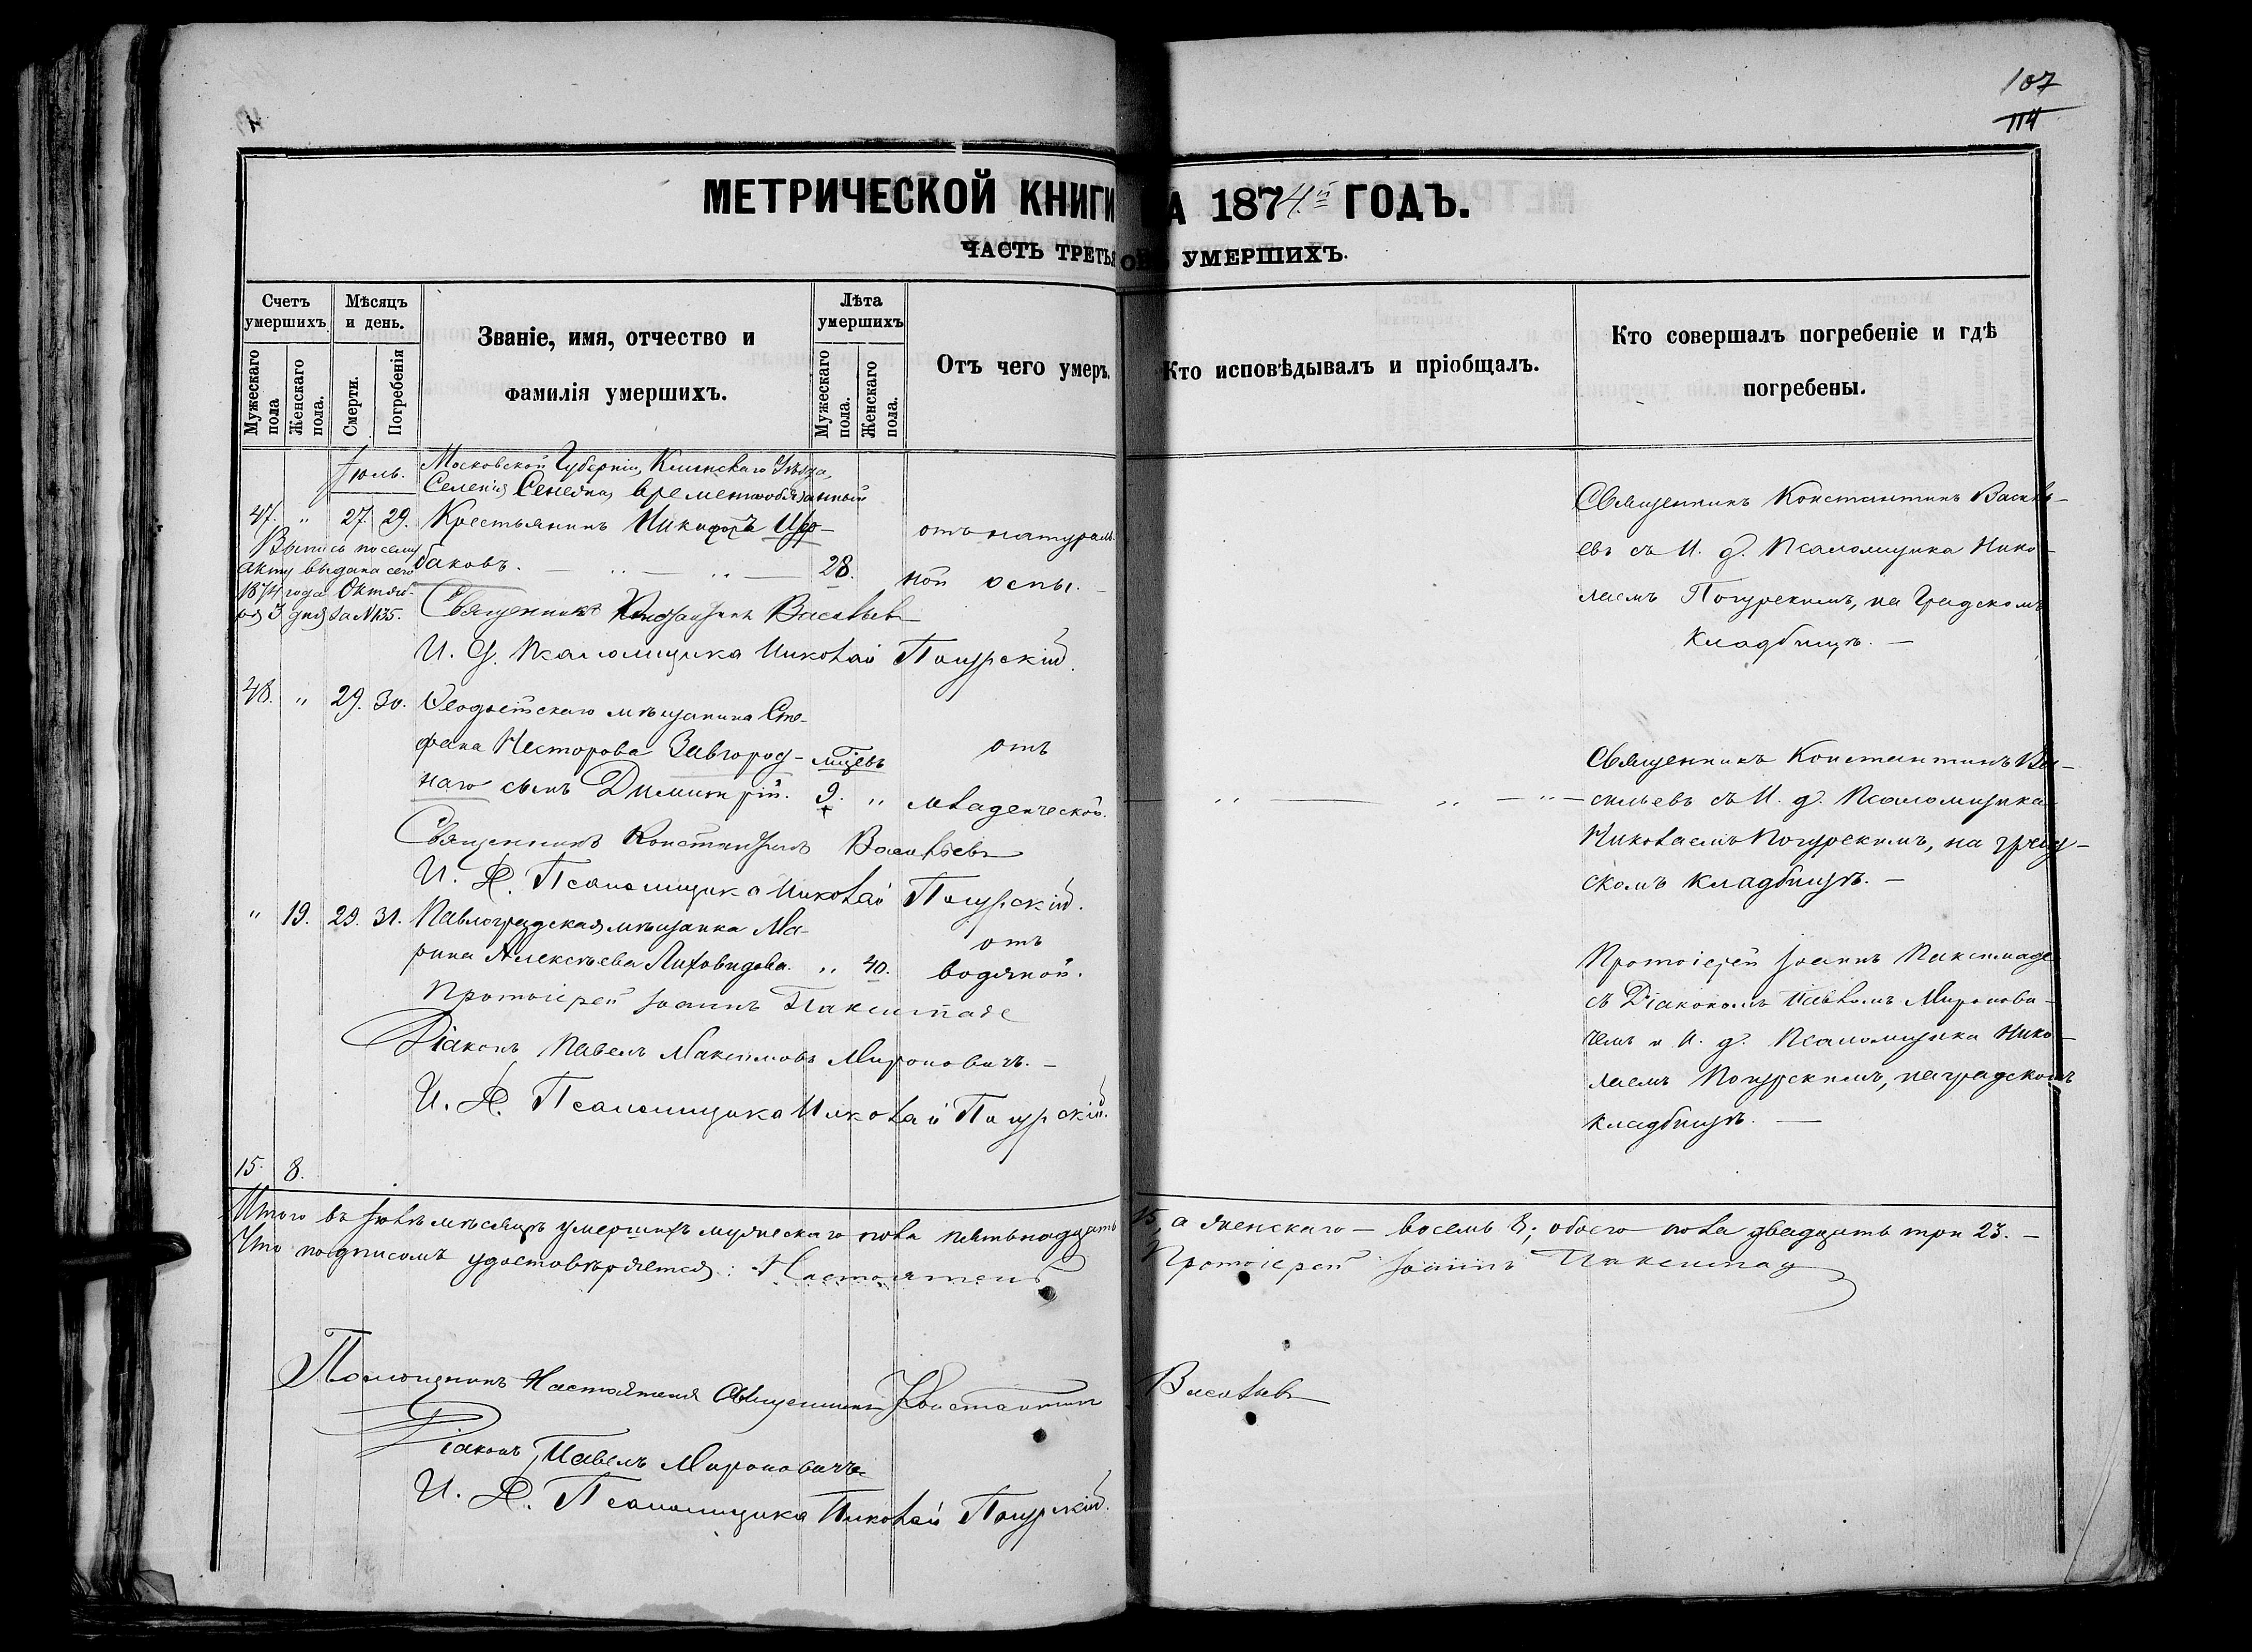 107
114
МЕТРИЧЕСКОЙ КНИГИ НА 1874й ГОДЪ.
ЧАСТЬ ТРЕТЬЯ О УМЕРШИХЪ.
Счетъ умершихъ
Мужескаго пола
Женскаго пола.
Мѣсяцъ и день.
Смерти.
Погребенія
Званіе, имя, отчество и
фамилія умершихъ.
Лѣта умершихъ
Мужескаго пола.
Женскаго пола.
Отъ чего умеръ.
Кто исповѣдывалъ и пріобщалъ.
Кто совершалъ погребеніе и гдѣ
погребены.
Іюль.
Московской Губерніи, Клинскаго Уѣзда,
Селенія временнообязанный
47. " 27. 29. Крестьянинъ Никифоръ
баковъ. 28.
отъ натураль-
ной оспы.
Выпись по сему
акту выдана сего
1874 года Октяб-
ря 3 дня за №135.
Священникъ Константинъ Васильевъ
И. д. Псаломщика Николай
Священникъ Константинъ Василь-
евъ съ И. д. Псаломщика Нико-
лаемъ на Градскомъ
кладбищѣ. —
48. " 29. 30. Ѳеодосійскаго мѣщанина Сте-
фана Несторова Завгород-
наго сынъ Димитрій.
мѣсяцевъ
9. "
отъ
младенческой.
Священникъ Константинъ Васильевъ
И. Д. Псаломщика Николай
Священникъ Константинъ Ва-
сильевъ съ И. д. Псаломщика
Николаемъ на град-
скомъ кладбищѣ. —
" 19. 29. 31. Павлоградская мѣщанка Ма-
рина Алексѣева Лиховидова. " 40.
отъ
водяной.
Протоіерей Іоаннъ
Діаконъ Павелъ Максимовъ Мироновичъ. —
И. Д. Псаломщика Николай
Протоіерей Іоаннъ
съ Діакономъ Павломъ Миронови-
чемъ и И. д. Псаломщика Нико-
лаемъ на градскомъ
кладбищѣ. —
15. 8.
Итого въ Іюлѣ мѣсяцѣ умершихъ мужескаго пола пятьнадцать 15, а женскаго — восемь 8; обоего пола двадцать три 23. —
Что подписомъ удостовѣряется: Настоятель Протоіерей Іоаннъ
Помощникъ Настоятеля Священникъ Константинъ Васильевъ
Діаконъ Павелъ Мироновичъ
И. Д. Псаломщика Николай